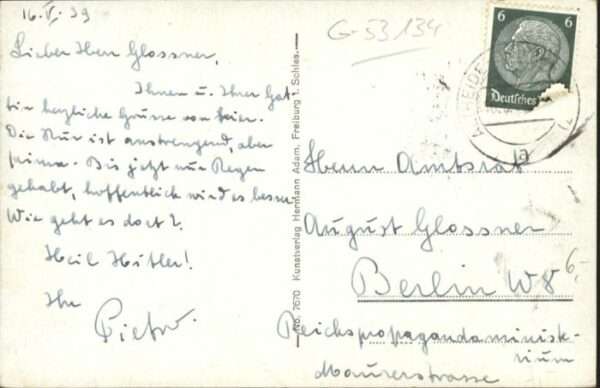 16.V.39
Lieber Herr Glossner,
Ihnen u. Ihrer Gat-
tin herzliche Grüsse von hier.
Die Kur ist anstrengend, aber
prima. Bis jetzt nur Regen
gehabt, hoffentlich wird es besser.
Wie geht es dort?
Heil Hitler!
Ihr
G-53134
No. 7670 Kunstverlag Hermann Adam, Freiburg i. Schles.
6 6
Deutsches
a
Herrn Amtsrat
August Glossner
Berlin W8
6,-
Reichspropagandaminist-
rium
Mauerstrasse